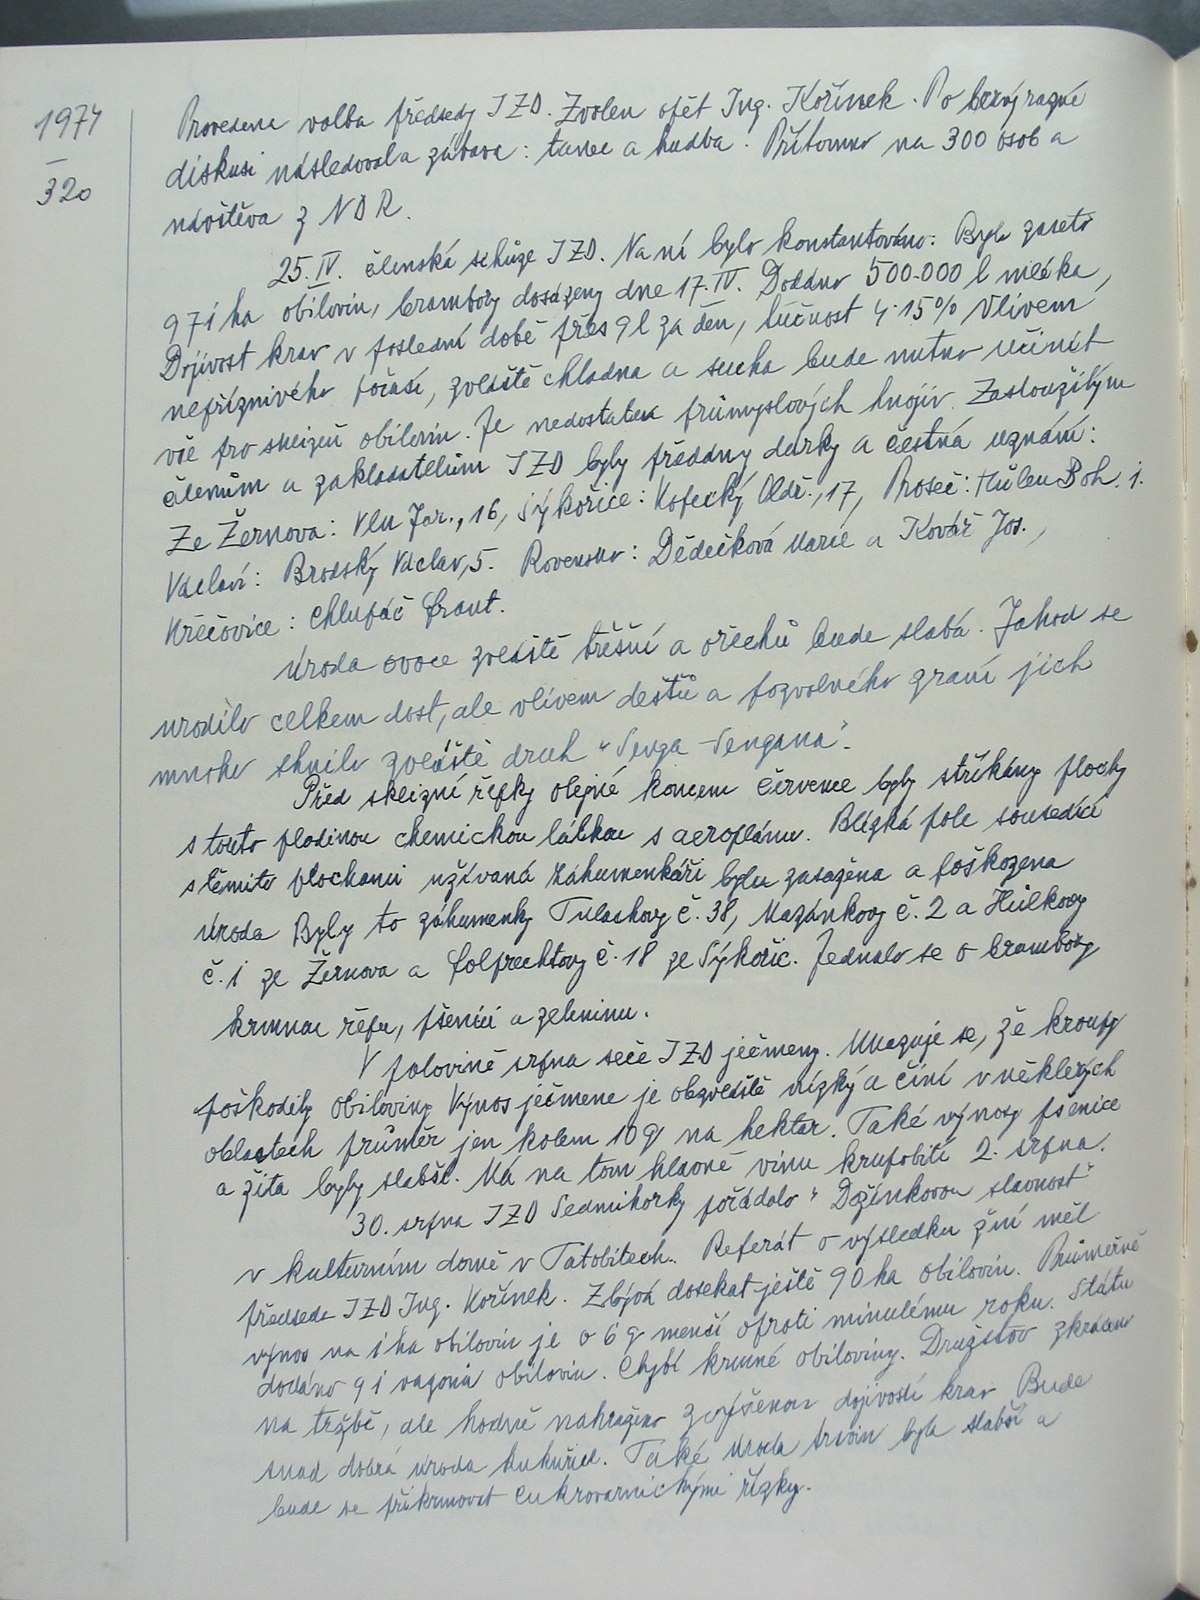 1974
—
320
Provedena volba předsedy JZD. Zvolen opět Ing. Kořínek. Po bezvýrazné
diskusi následovala zábava: tanec a hudba. Přítomno na 300 osob a
návštěva z NDR.
25.IV. členská schůze JZD. Na ní bylo konstantováno: Bylo zaseto
971 ha obilovin, brambory dosázeny dne 17.IV. Dodáno 500.000 l mléka,
Dojivost krav v poslední době přes 9 l za den, tučnost 4.15% Vlivem
nepříznivého počasí, zvláště chladna a sucha bude nutno učinit
vše pro sklizeň obilovin. Je nedostatek průmyslových hnojiv. Zasloužilým
členům a zakladatelům JZD byly předány dárky a čestná uznání:
Ze Žernova: Vlk Jar., 16, Sýkořice: Kopecký Oldř., 17, Proseč: Hůlka Boh. 1.
Václaví: Brodský Václav, 5. Rovensko: Dědečková Marie a Kovář Jos.,
Křečovice: Chlupáč Frant.
Úroda ovoce zvláště třešní a ořechů bude slabá. Jahod se
urodilo celkem dost, ale vlivem dešťů a pozvolného zraní jich
mnoho shnilo zvláště druh "Senga-Sengana".
Před sklizní řepky olejné koncem července byly stříkány plochy
s touto plodinou chemickou látkou s aeroplánu. Blízká pole sousedící
s těmito plochami užívaná záhumenkáři byla zasažena a poškozena
úroda Byly to záhumenky Tulachovy č. 38, Mazánkovy č. 2 a Hůlkovy
č. 1 ze Žernova a Folprechtovy č. 18 ze Sýkořic. Jednalo se o brambory
krmnou řepu, pšenici a zeleninu.
V polovině srpna seče JZD ječmeny. Ukazuje se, že kroupy
poškodily obiloviny Výnos ječmene je obzvláště nízký a činí v některých
oblastech průměr jen kolem 10 q na hektar. Také výnosy pšenice
a žita byly slabší. Má na tom hlavně vinu krupobití 2. srpna.
30. srpna JZD Sedmihorky pořádalo "Dožínkovou slavnost"
v kulturním domě v Tatobitech. Referát o výsledku žní měl
předseda JZD Ing. Kořínek. Zbývá dosekat ještě 90 ha obilovin. Průměrně
výnos na 1 ha obilovin je o 6 q menší oproti minulému roku. Státu
dodáno 91 vagonů obilovin. Chybí krmné obiloviny. Družstvo zkráceno
na tržbě, ale hodně nahrazeno zvýšenou dojivostí krav Bude
snad dobrá úroda kukuřice. Také úroda travin byla slabší a
bude se přikrmovat cukrovarnickými řízky.